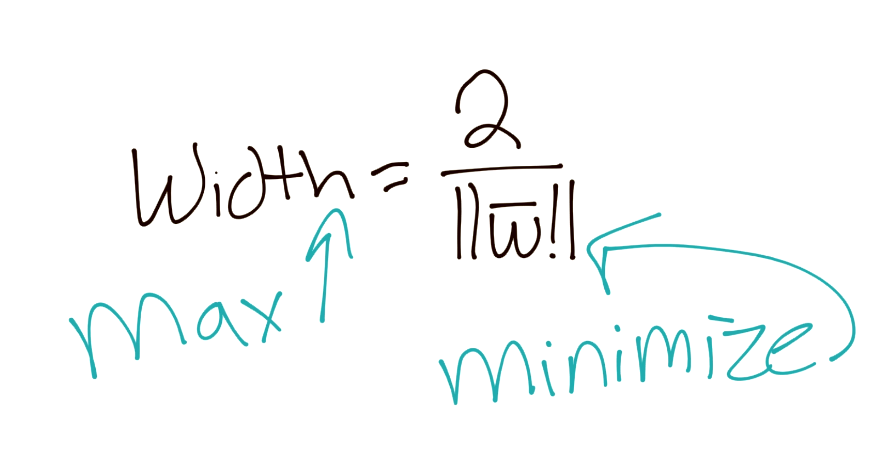 Width = 2
||w̅||
max
minimize